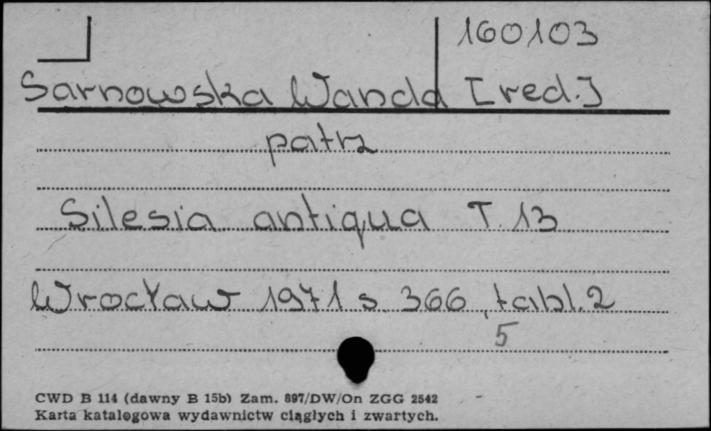 160103
Sarnowska Wanda [red.]
patrz
Silesia antiqua T. 13
Wrocław 1971 s. 366, tabl. 2
5
CWD B 114 (dawny B 15b) Zam. 897/DW/On ZGG 2542
Karta katalogowa wydawnictw ciągłych i zwartych.